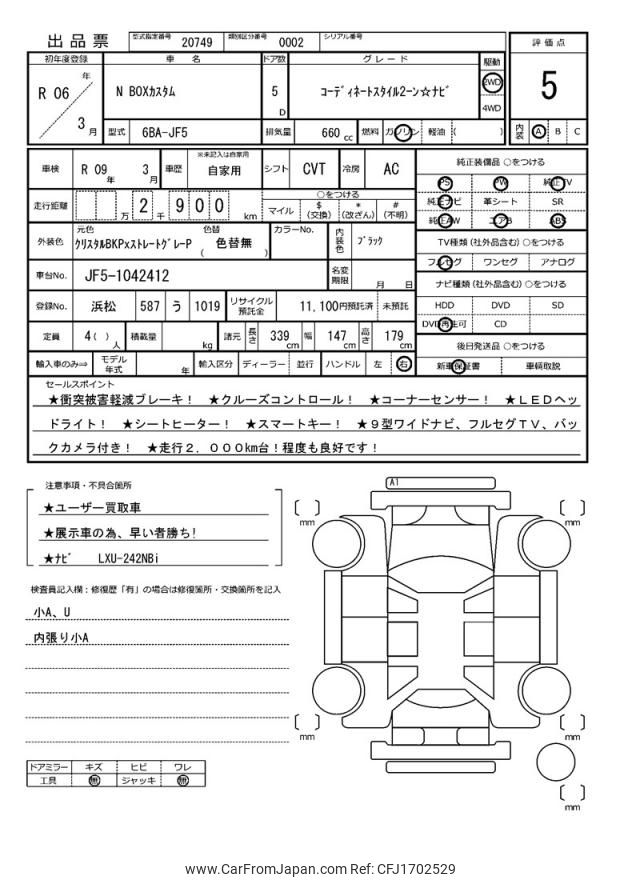 出品票 型式指定番号 20749 類別区分番号 0002 シリアル番号
初年度登録 車名 ドア数 グレード 駆動 評価点
R 06 年 3 月 N BOXカスタム 5 D コーディネートスタイル2ーン☆ナビ 2WD 4WD 5
型式 6BA-JF5 排気量 660 cc 燃料 ガソリン 軽油 ( ) 内装 A B C
車検 R 09 年 3 月 車歴 ※未記入は自家用 自家用 シフト CVT 冷房 AC 純正装備品 ○をつける
PS PW 純正TV
走行距離 万 2 千 9 0 0 km ○をつける マイル $ (交換) * (改ざん) # (不明)
純正ナビ 革シート SR
純正AW エアB ABS
外装色 元色 クリスタルBKPxストレートグレーP 色替 ( 色替無 ) カラーNo. 内装色 ブラック
TV種類 (社外品含む) ○をつける
フルセグ ワンセグ アナログ
車台No. JF5-1042412 名変期限 月 日
ナビ種類 (社外品含む) ○をつける
HDD DVD SD
DVD再生可 CD
登録No. 浜松 587 う 1019 リサイクル預託金 11,100円預託済 未預託
定員 4( ) 人 積載量 kg 諸元 長さ 339 cm 幅 147 cm 高さ 179 cm
後日発送品 ○をつける
新車保証書 車輌取説
輸入車のみ⇒ モデル年式 年 輸入区分 ディーラー 並行 ハンドル 左 右
セールスポイント
★衝突被害軽減ブレーキ! ★クルーズコントロール! ★コーナーセンサー! ★LEDヘッ
ドライト! ★シートヒーター! ★スマートキー! ★9型ワイドナビ、フルセグTV、バッ
クカメラ付き! ★走行2.000km台!程度も良好です!
注意事項・不具合箇所
★ユーザー買取車
★展示車の為、早い者勝ち!
★ナビ LXU-242NBi
検査員記入欄:修復歴「有」の場合は修復箇所・交換箇所を記入
小A、U
内張り小A
ドアミラー キズ ヒビ ワレ
工具 無 ジャッキ 無
A1
mm
mm
mm
mm
mm
www.CarFromJapan.com Ref: CFJ1702529